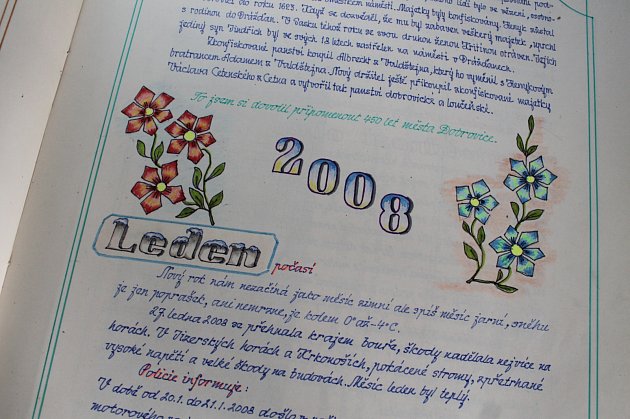 do roku 1623. Když se dozvěděl, že mu byl zabaven veškerý majetek, uprchl
s rodinou do Drážďan. V lednu téhož roku se svou druhou ženou Kristinou otráven. Jejich
jediný syn Jindřich byl ve svých 18 letech zastřelen na náměstí v Drážďanech.
Zkonfiskované panství koupil Albrecht z Valdštejna, který ho vyměnil s Henykovým
bratrancem Adamem z Valdštejna. Nový držitel ještě přikoupil zkonfiskované majetky
Václava Cetenského z Cetna a vytvořil tak panství dobrovické a loučeňské.
To jsem si dovolil připomenout 450 let města Dobrovice.
2008
Leden
počasí
Nový rok nám nezačíná jako měsíc zimní ale spíš měsíc jarní, sněhu
je jen poprašek, ani nemrzne, je kolem 0° až -4°C.
27. ledna 2008 se přehnala krajem bouře, škody nadělala nejvíce na
horách. V Jizerských horách a Krkonoších, potácené stromy, zpřetrhané
vysoké napětí a velké škody na budovách. Měsíc leden byl teplý.
Policie informuje:
V době od 20.1. do 21.1. 2008 došlo
motorového